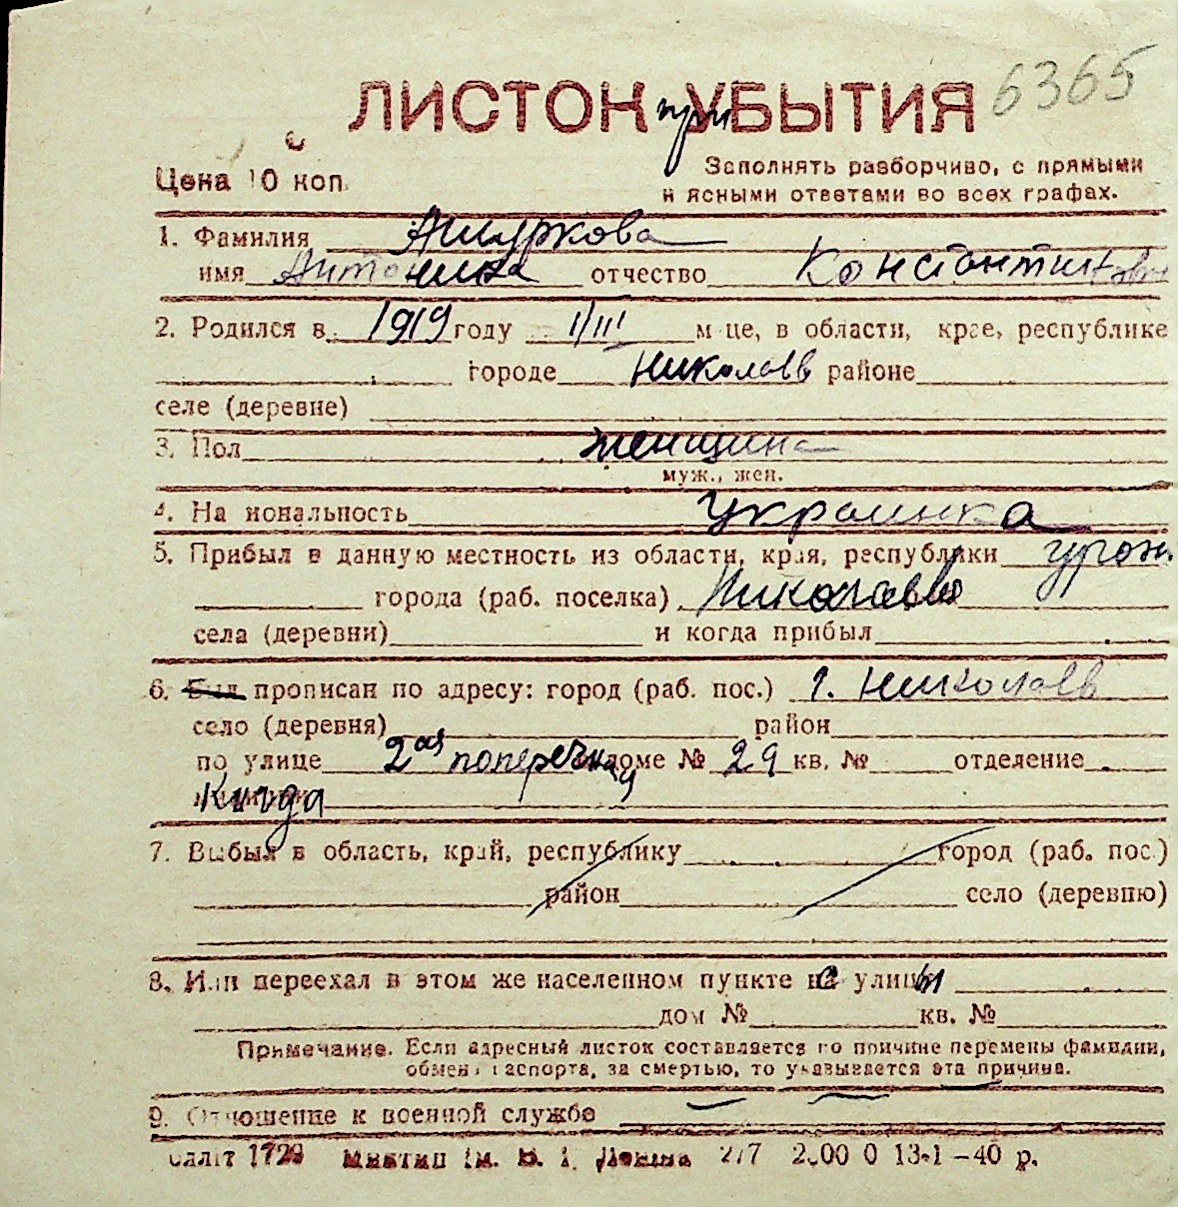 ЛИСТОК при УБЫТИЯ 6365
Цена 10 коп.
Заполнять разборчиво, с прямыми
и ясными ответами во всех графах.
1. Фамилия Ашуркова
имя Антонина отчество Константиновна
2. Родился в 1919 году 1/III м-це, в области, крае, республике
городе Николаев районе
селе (деревне)
3. Пол женщина
муж., жен.
4. Национальность Украинка
5. Прибыл в данную местность из области, края, республики
города (раб. поселка) Николаев
села (деревни) и когда прибыл
6. Был прописан по адресу: город (раб. пос.) г. Николаев
село (деревня) район
по улице 2ая поперечная доме № 29 кв. № отделение
7. Выбыл в область, край, республику город (раб. пос.)
район село (деревню)
8. Или переехал в этом же населенном пункте с улицы
дом № кв. №
Примечание. Если адресный листок составляется по причине перемены фамилии,
обмена паспорта, за смертью, то указывается эта причина.
9. Отношение к военной службе
1729 Ім. В. І. Леніна 13-1-40 р.